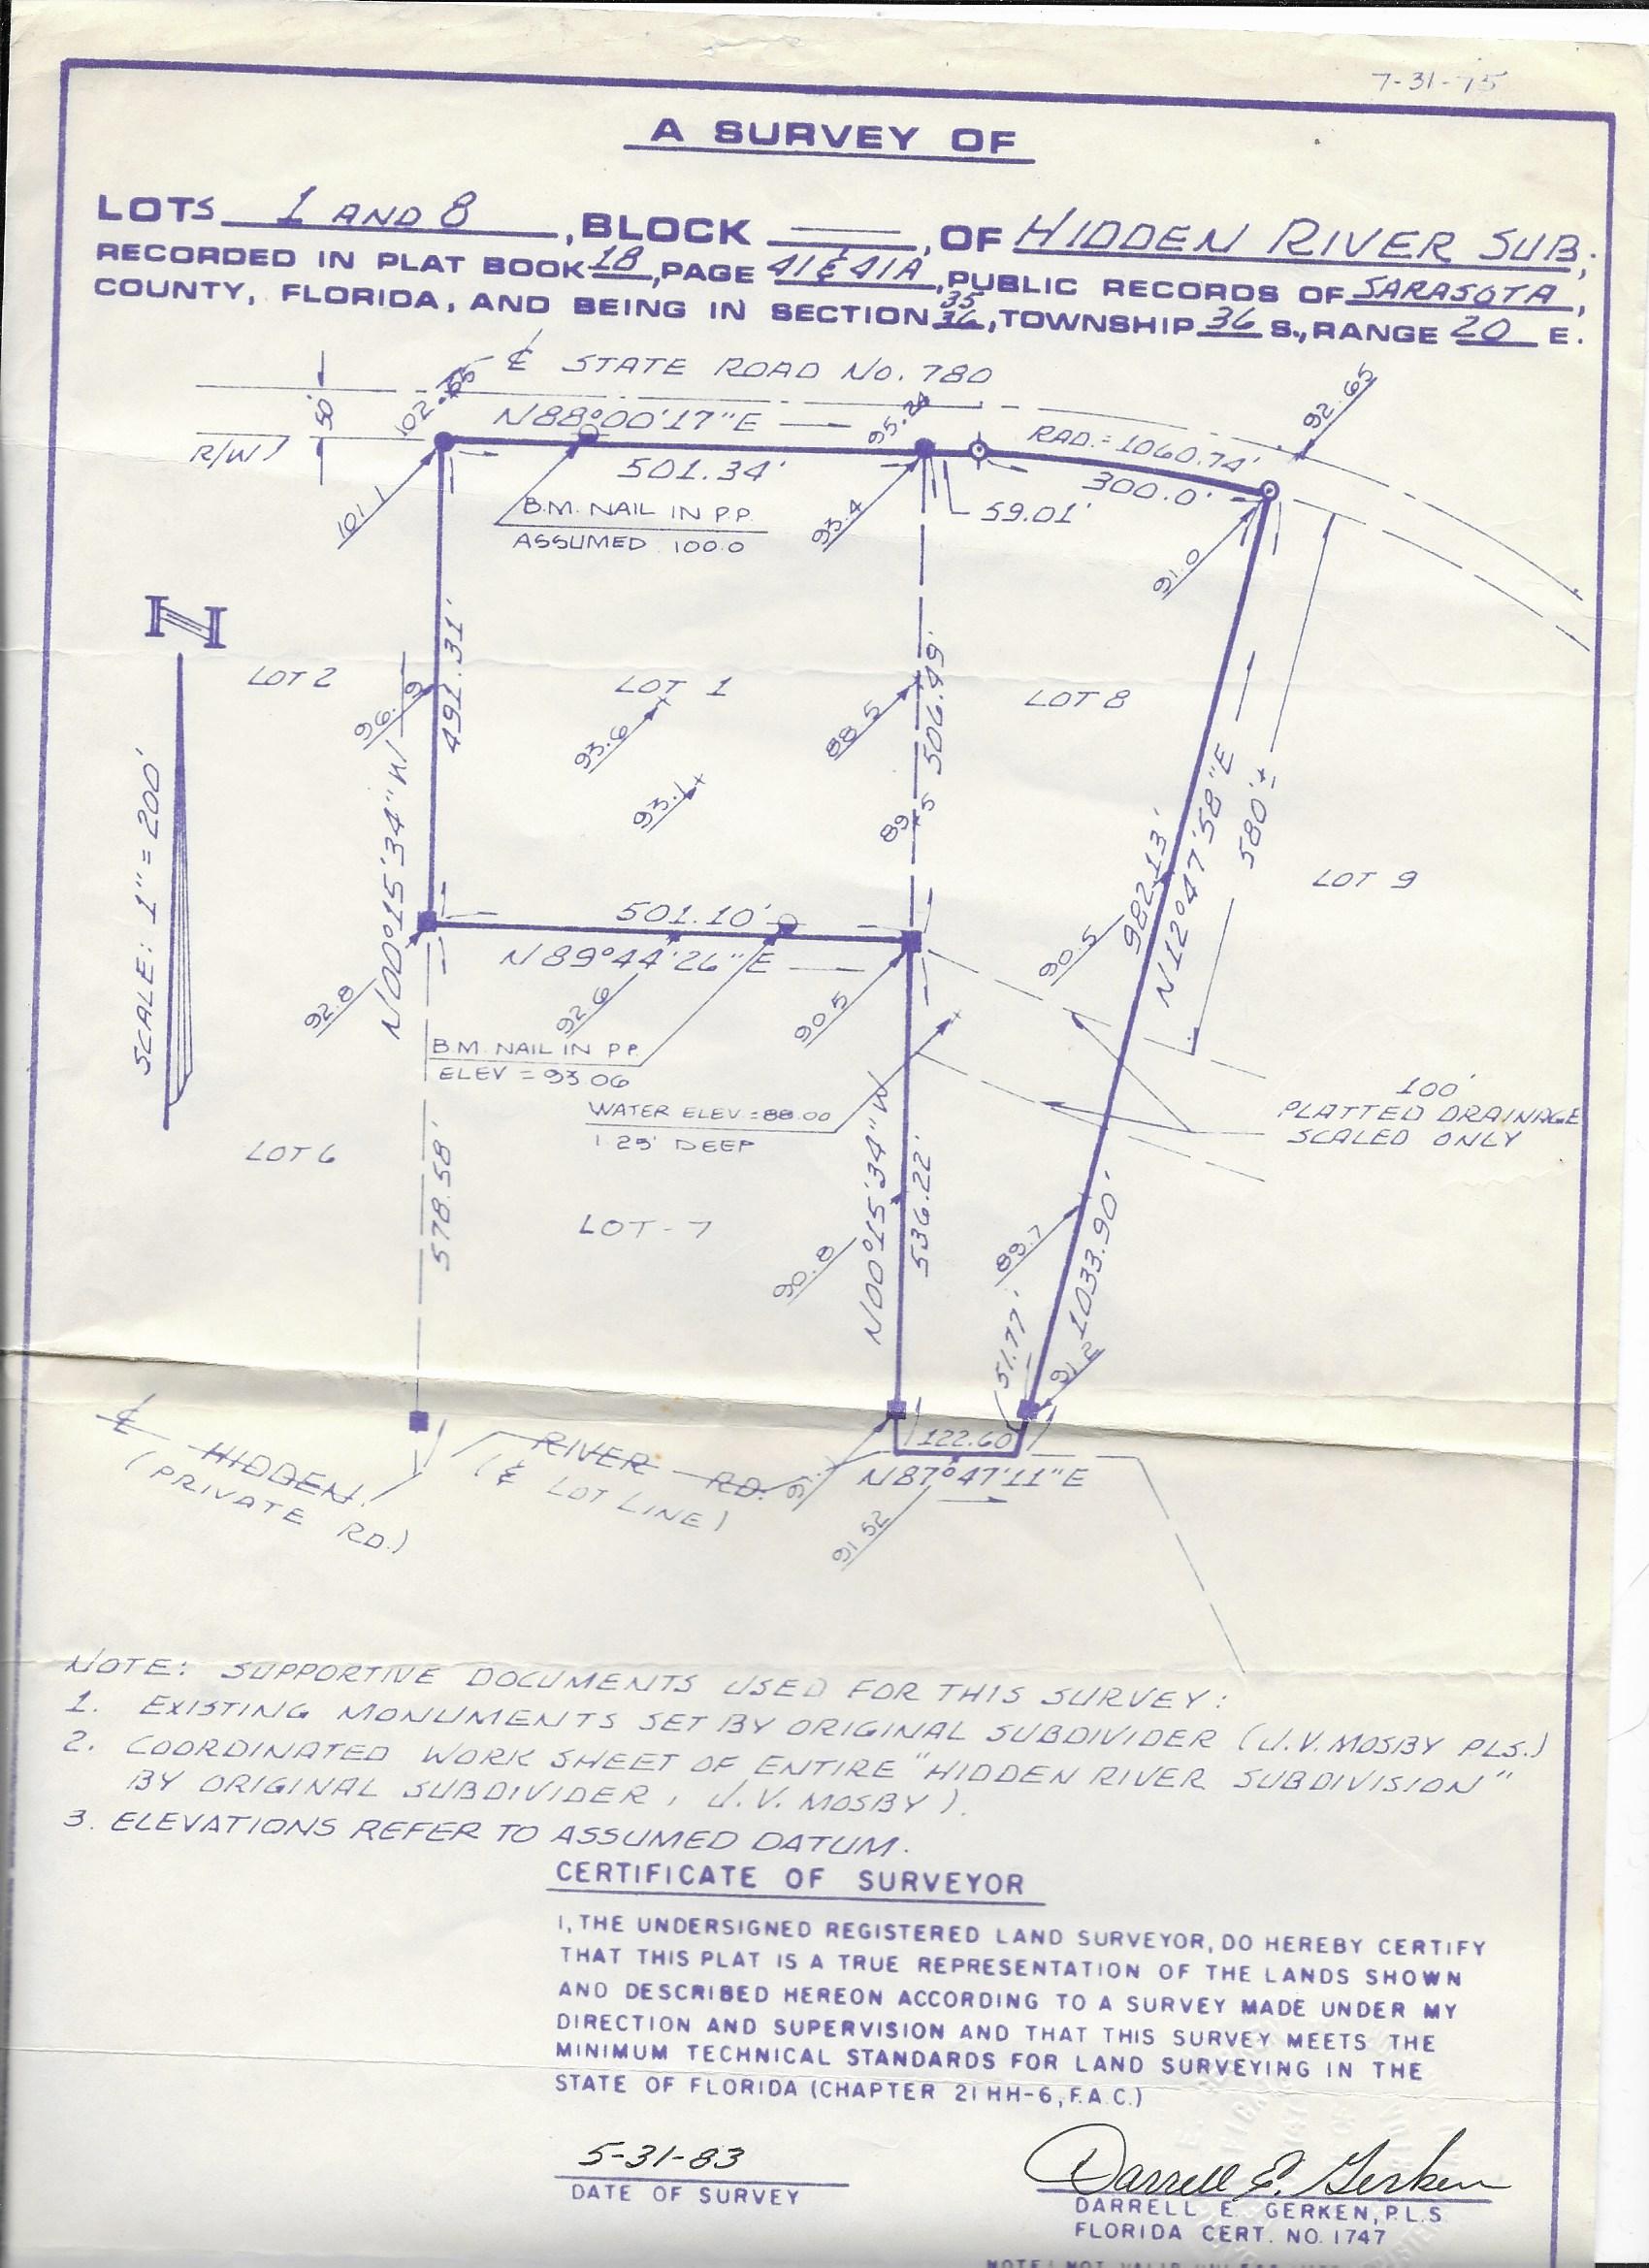 7-31-75
A SURVEY OF
LOTS 1 AND 8, BLOCK ——, OF HIDDEN RIVER SUB.,
RECORDED IN PLAT BOOK 18, PAGE 41 & 41A, PUBLIC RECORDS OF SARASOTA,
COUNTY, FLORIDA, AND BEING IN SECTION 35 36, TOWNSHIP 36 S., RANGE 20 E.
℄ STATE ROAD NO. 780
50
R/W
N88°00'17"E
92.65
RAD. = 1060.74'
501.34'
300.0'
59.01'
101.1
B.M. NAIL IN P.P.
ASSUMED 100.0
93.4
91.0
N
SCALE: 1" = 200'
LOT 2
LOT 1
LOT 8
491.31'
96.9
93.6
93.1
88.5
89.5
506.49'
N00°15'34"W
982.13'
N12°47'58"E
580'±
LOT 9
501.10'
N89°44'26"E
92.8
92.6
90.5
90.5
B.M. NAIL IN P.P.
ELEV = 93.06
WATER ELEV = 88.00
1.25' DEEP
100'
PLATTED DRAINAGE
SCALED ONLY
LOT 6
578.58'
LOT-7
90.8
N00°15'34"W
536.22'
89.7
1033.90'
51.77'
91.2
℄ HIDDEN RIVER RD.
(PRIVATE RD.)
(& LOT LINE)
122.60
N87°47'11"E
91.52
NOTE: SUPPORTIVE DOCUMENTS USED FOR THIS SURVEY:
1. EXISTING MONUMENTS SET BY ORIGINAL SUBDIVIDER (J.V. MOSBY PLS.)
2. COORDINATED WORK SHEET OF ENTIRE "HIDDEN RIVER SUBDIVISION"
BY ORIGINAL SUBDIVIDER, J.V. MOSBY).
3. ELEVATIONS REFER TO ASSUMED DATUM.
CERTIFICATE OF SURVEYOR
I, THE UNDERSIGNED REGISTERED LAND SURVEYOR, DO HEREBY CERTIFY
THAT THIS PLAT IS A TRUE REPRESENTATION OF THE LANDS SHOWN
AND DESCRIBED HEREON ACCORDING TO A SURVEY MADE UNDER MY
DIRECTION AND SUPERVISION AND THAT THIS SURVEY MEETS THE
MINIMUM TECHNICAL STANDARDS FOR LAND SURVEYING IN THE
STATE OF FLORIDA (CHAPTER 21 HH-6, F.A.C.)
5-31-83
DATE OF SURVEY
Darrell E. Gerken
DARRELL E. GERKEN, P.L.S.
FLORIDA CERT. NO. 1747